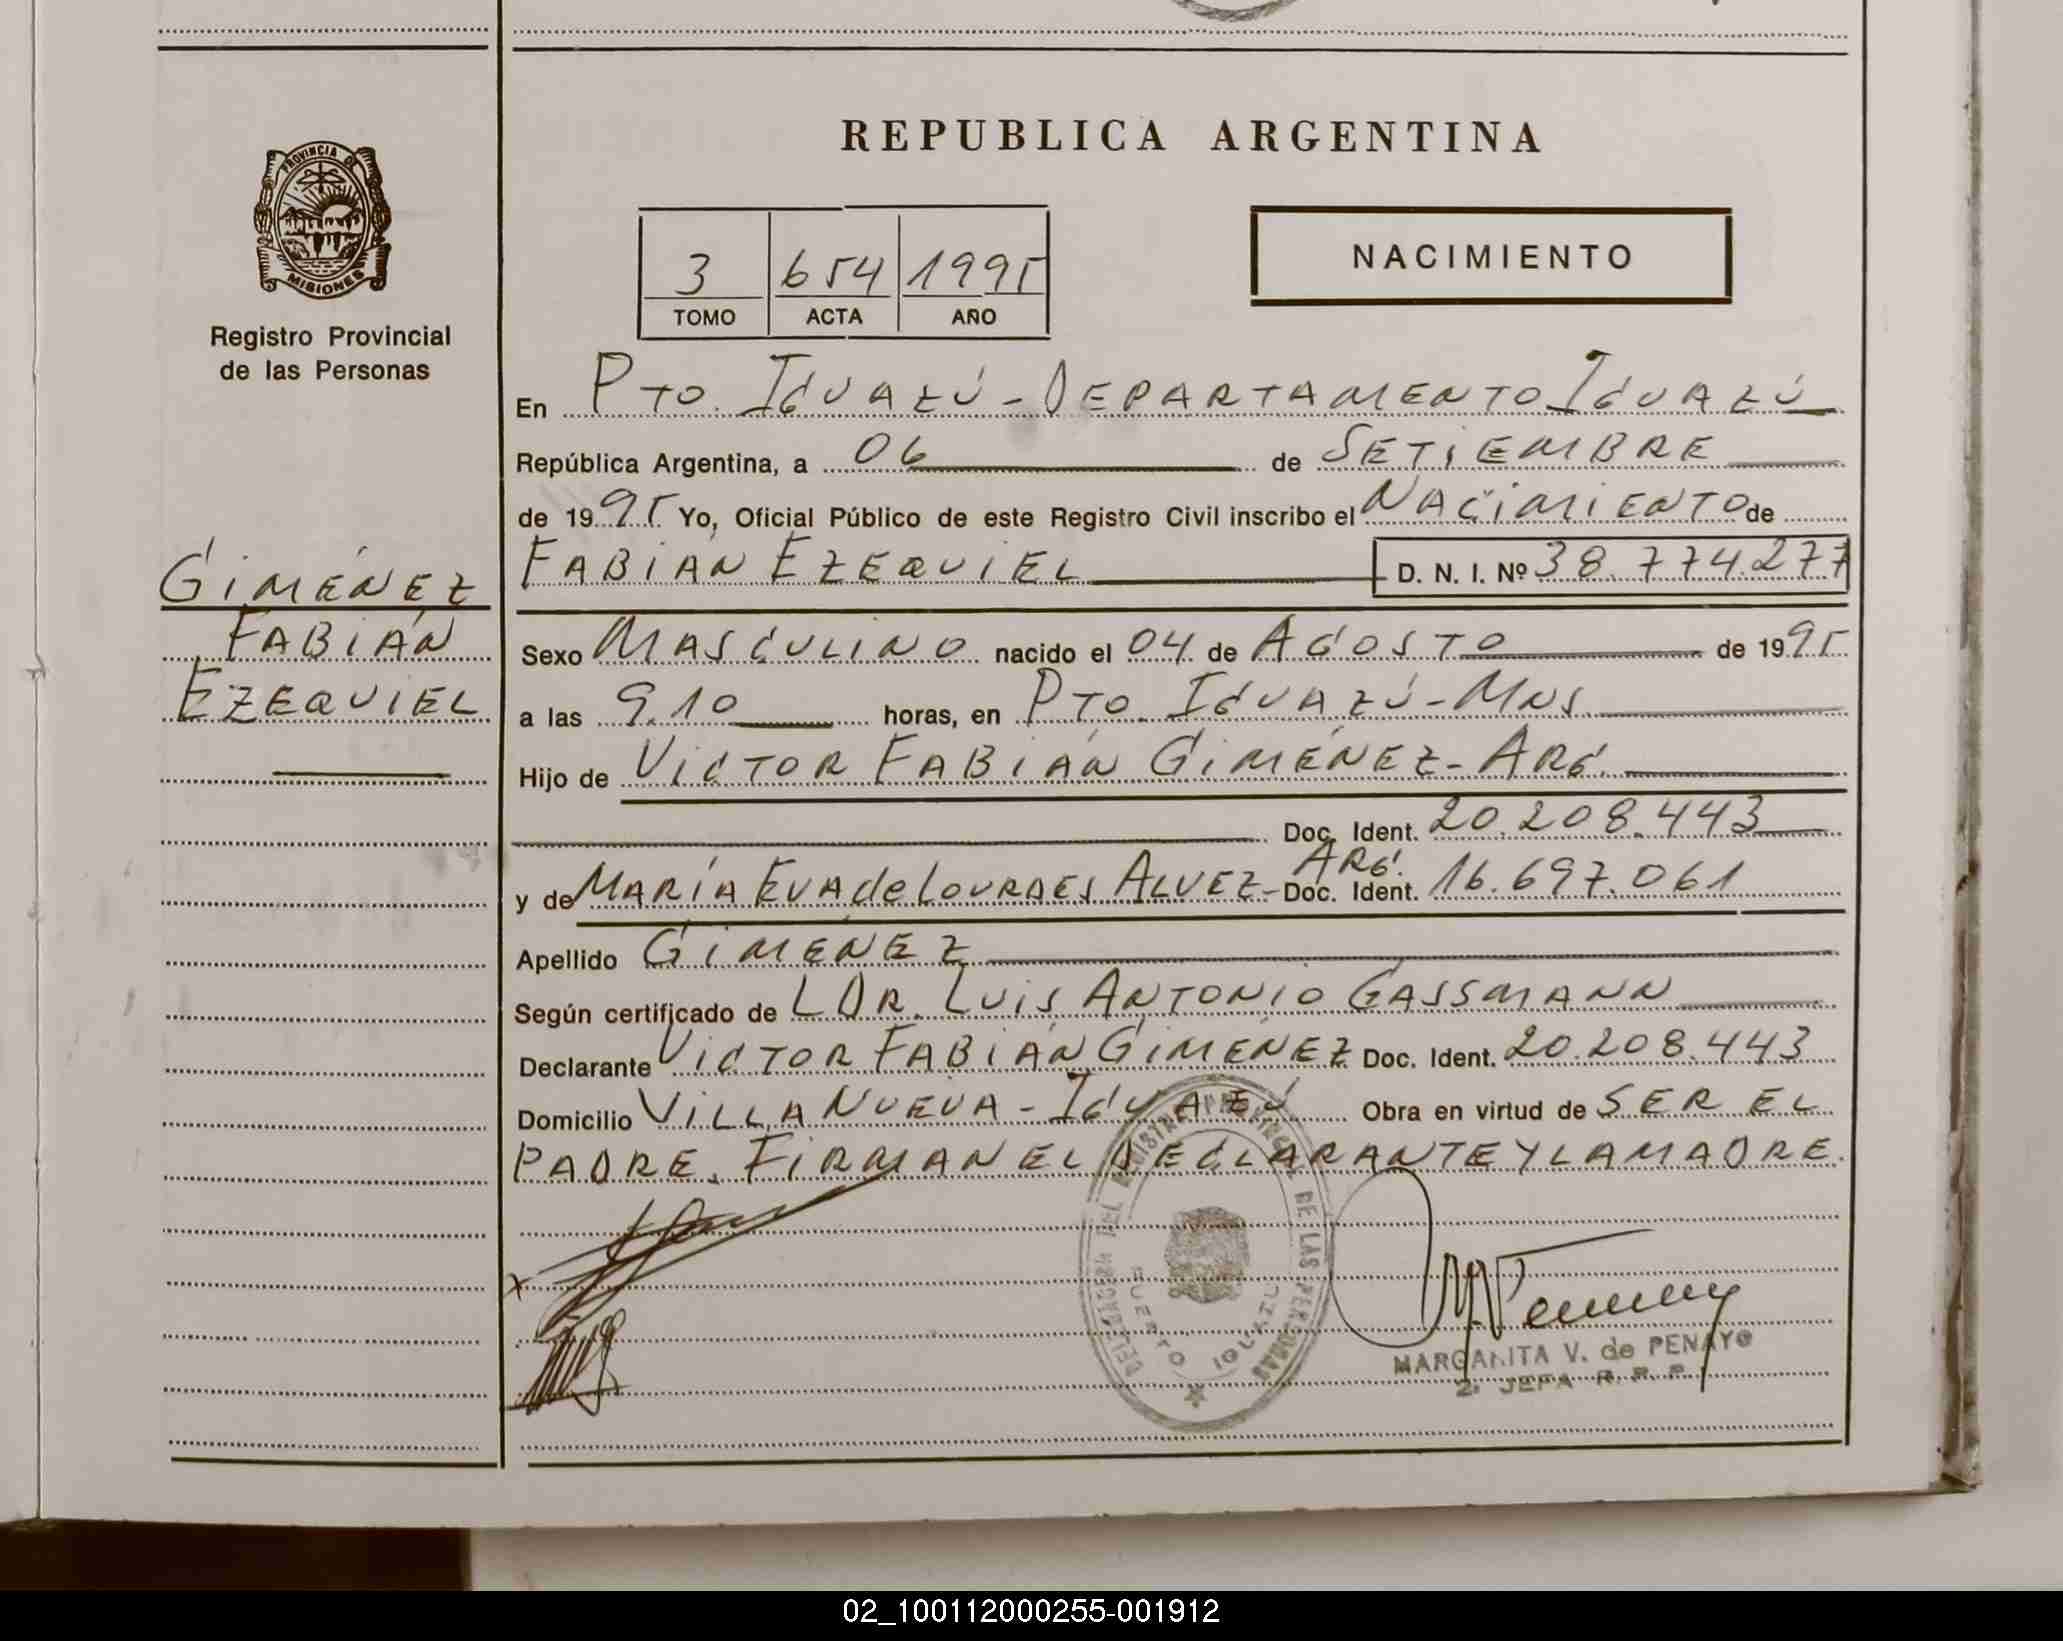 REPUBLICA ARGENTINA
PROVINCIA DE
MISIONES
Registro Provincial
de las Personas
3 654 1995
TOMO ACTA AÑO
NACIMIENTO
En PTO. IGUAZÚ - DEPARTAMENTO IGUAZÚ
República Argentina, a 06 de SETIEMBRE
de 1995 Yo, Oficial Público de este Registro Civil inscribo el NACIMIENTO de
GIMÉNEZ
FABIÁN
EZEQUIEL
FABIÁN EZEQUIEL D. N. I. Nº 38.774.277
Sexo MASCULINO nacido el 04 de AGOSTO de 1995
a las 9.10 horas, en PTO. IGUAZÚ - MNS.
Hijo de VICTOR FABIÁN GIMÉNEZ - ARG.
Doc. Ident. 20.208.443
y de MARÍA EVA de LOURDES ALVEZ - ARG. Doc. Ident. 16.697.061
Apellido GIMÉNEZ
Según certificado de L DR. LUIS ANTONIO GASSMANN
Declarante VICTOR FABIÁN GIMÉNEZ Doc. Ident. 20.208.443
Domicilio VILLA NUEVA - IGUAZÚ Obra en virtud de SER EL
PADRE. FIRMAN EL DECLARANTE Y LA MADRE.
DELEGACION DEL REGISTRO PROVINCIAL DE LAS PERSONAS
PUERTO IGUAZU
MARGARITA V. de PENAYO
2ª JEFA R. P. P.
02_100112000255-001912